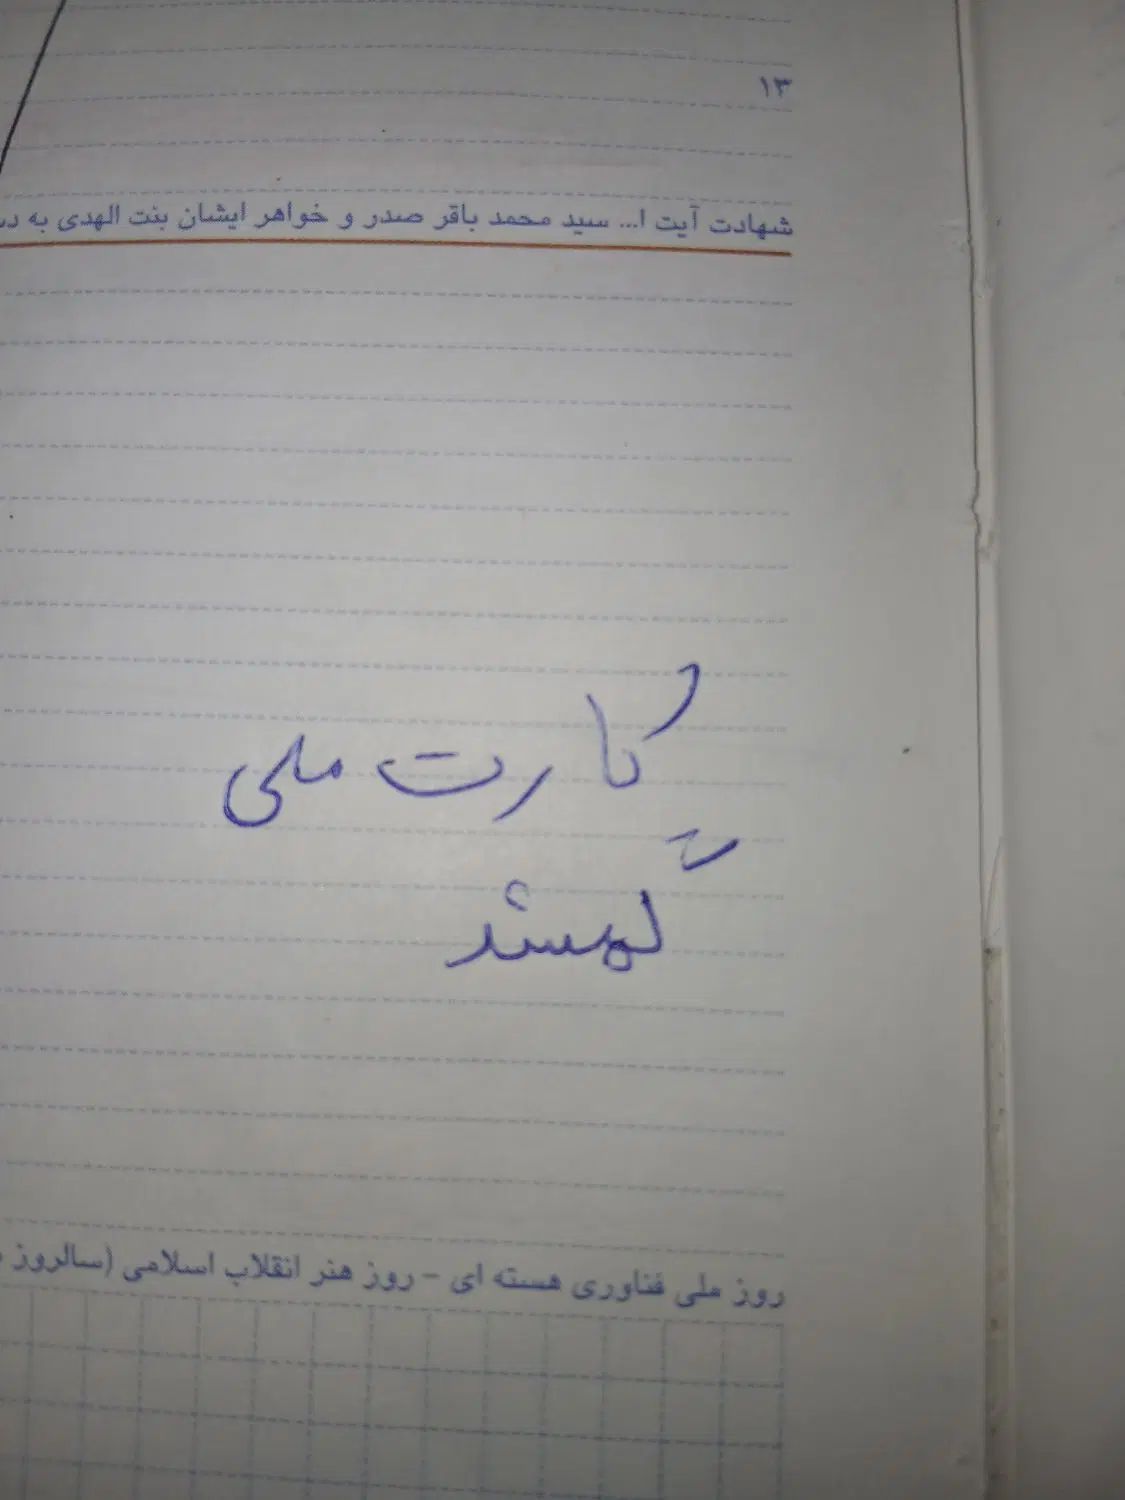 ۱۳
شهادت آیت ا... سید محمد باقر صدر و خواهر ایشان بنت الهدی به
کارت ملی
روز ملی فناوری هسته ای - روز هنر انقلاب اسلامی (سالروز